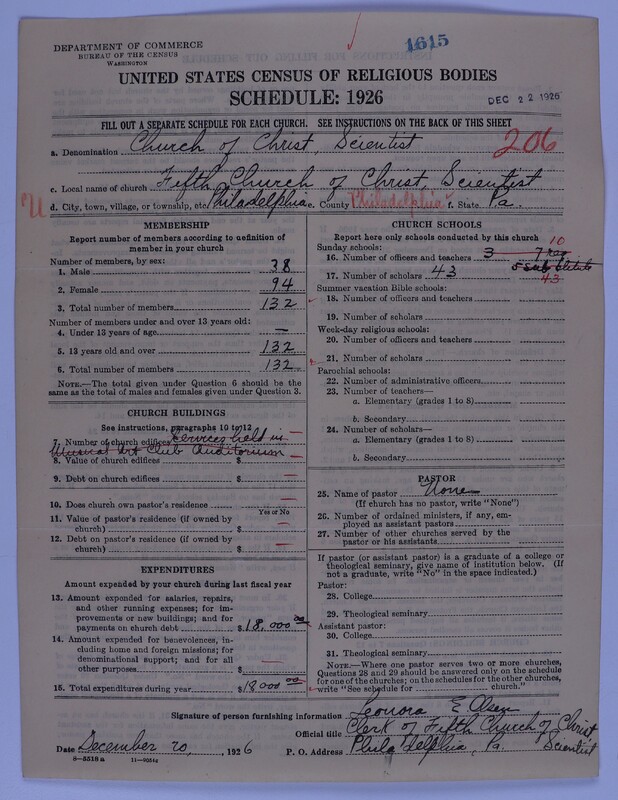 1615
DEPARTMENT OF COMMERCE
BUREAU OF THE CENSUS
WASHINGTON
UNITED STATES CENSUS OF RELIGIOUS BODIES
SCHEDULE: 1926
DEC 22 1926
FILL OUT A SEPARATE SCHEDULE FOR EACH CHURCH. SEE INSTRUCTIONS ON THE BACK OF THIS SHEET
a. Denomination Church of Christ, Scientist 206
c. Local name of church Fifth Church of Christ, Scientist
U d. City, town, village, or township, etc. Philadelphia e. County "Philadelphia" f. State Pa.
MEMBERSHIP
Report number of members according to definition of member in your church
Number of members, by sex:
1. Male 38
2. Female 94
3. Total number of members 132
Number of members under and over 13 years old:
4. Under 13 years of age —
5. 13 years old and over 132
6. Total number of members 132
NOTE.—The total given under Question 6 should be
same as the total of males and females given under Question 3.
CHURCH BUILDINGS
See instructions, paragraphs 10 to 12
7. Number of church edifices Services held in —
Musical Art Club Auditorium
8. Value of church edifices $ —
9. Debt on church edifices $
10. Does church own pastor's residence —
Yes or No
11. Value of pastor's residence (if owned by
church) $ —
12. Debt on pastor's residence (if owned by
church) $ —
EXPENDITURES
Amount expended by your church during last fiscal year
13. Amount expended for salaries, repairs,
and other running expenses; for im-
provements or new buildings; and for
payments on church debt $ 18,000 00
14. Amount expended for benevolences, in-
cluding home and foreign missions; for
denominational support; and for all
other purposes $ —
15. Total expenditures during year $ 18000 00
CHURCH SCHOOLS
Report here only schools conducted by this church
Sunday schools: 10
16. Number of officers and teachers 3 7 reg
5 substitute
17. Number of scholars 43 43
Summer vacation Bible schools:
18. Number of officers and teachers
19. Number of scholars
Week-day religious schools:
20. Number of officers and teachers
21. Number of scholars
Parochial schools:
22. Number of administrative officers
23. Number of teachers—
a. Elementary (grades 1 to 8)
b. Secondary
24. Number of scholars—
a. Elementary (grades 1 to 8)
b. Secondary
PASTOR
25. Name of pastor None
(If church has no pastor, write "None")
26. Number of ordained ministers, if any, em-
ployed as assistant pastors
27. Number of other churches served by the
pastor or his assistants
If pastor (or assistant pastor) is a graduate of a college or
theological seminary, give name of institution below. (If
not a graduate, write "No" in the space indicated.)
Pastor:
28. College
29. Theological seminary
Assistant pastor:
30. College
31. Theological seminary
NOTE.—Where one pastor serves two or more churches,
Questions 28 and 29 should be answered only on the schedule
for one of the churches; on the schedules for the other churches,
write "See schedule for church."
Signature of person furnishing information Leonora E Olsen
Official title Clerk of Fifth Church of Christ
Scientist
Date December 20, 1926 P. O. Address Philadelphia, Pa.
8—5518 a 11—90544